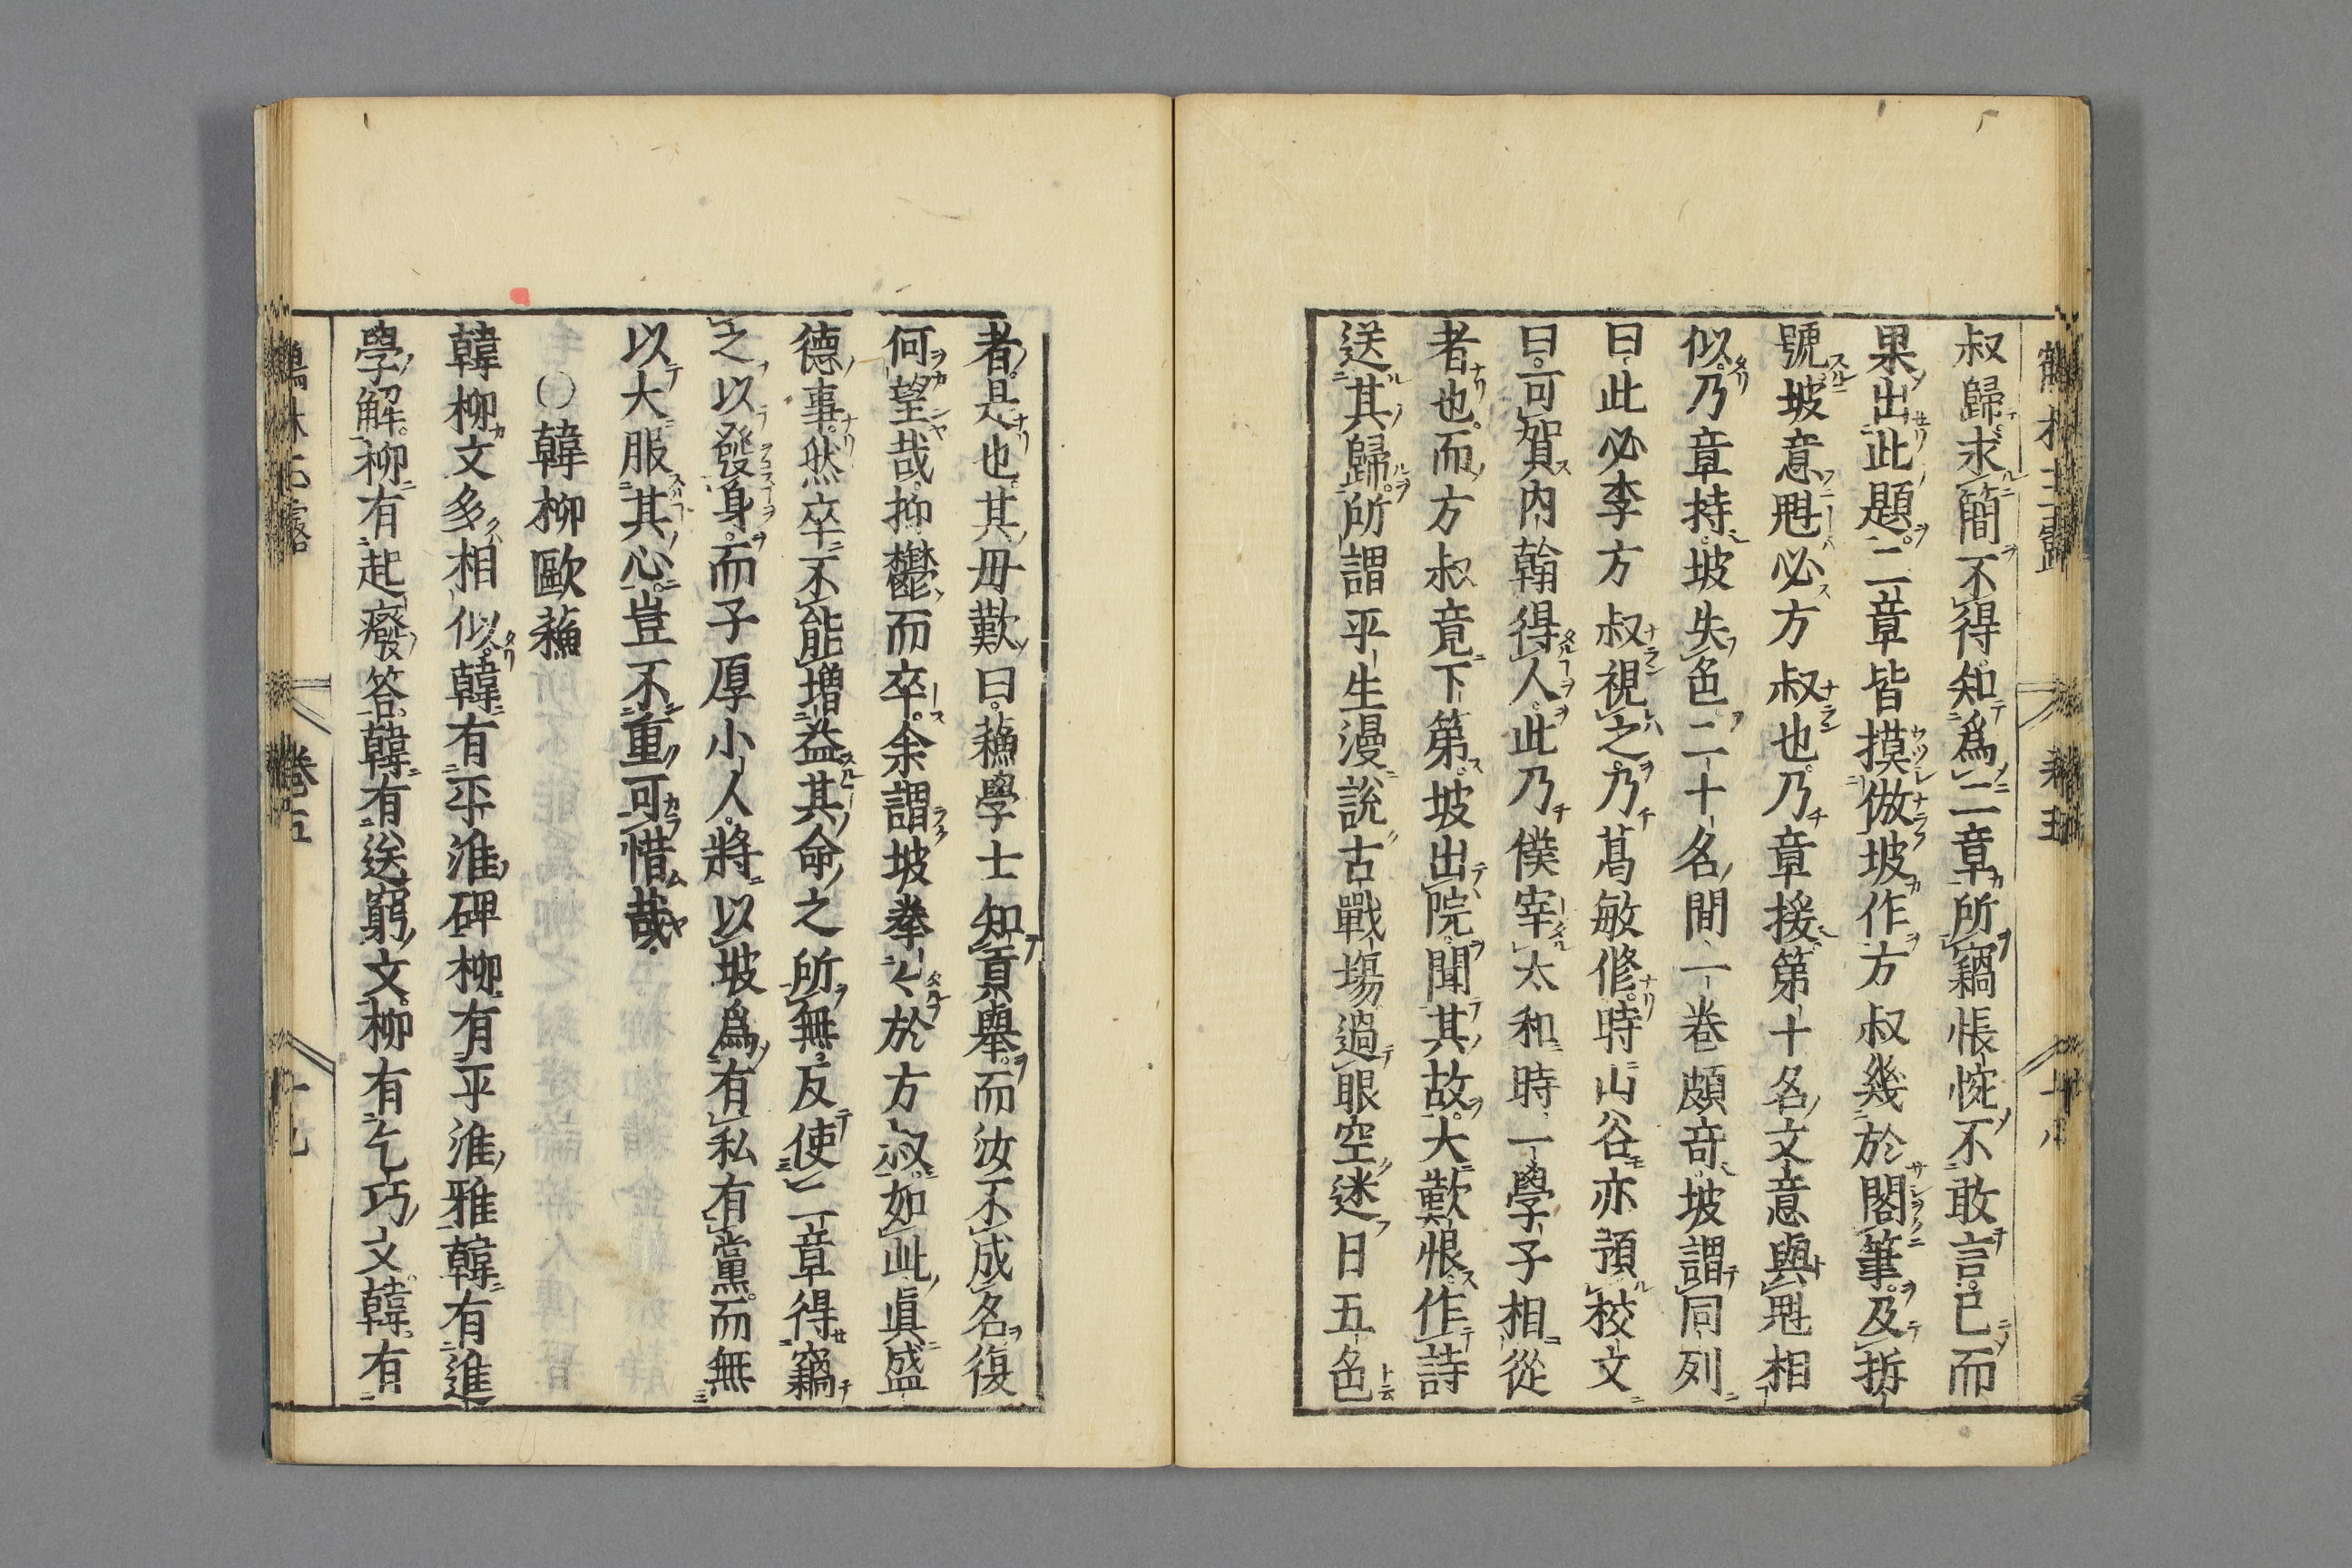 叔歸求簡不得知爲二章所竊悵惋不敢言已而
果出此題二章皆摸倣坡作方叔幾於閣筆及拆
號坡意魁必方叔也乃章援第十名文意與魁相
似乃章持坡失色二十名間一卷頗奇坡謂同列
曰此必李方叔視之乃葛敏修時山谷亦預校文
曰可賀內翰得人此乃僕宰太和時一學子相從
者也而方叔竟下第坡出院聞其故大歎恨作詩
送其歸所謂平生漫說古戰場過眼空迷日五色
者是也其母歎曰蘓學士知貢舉而汝不成名復
何望哉抑鬱而卒余謂坡拳〻於方叔如此眞盛
德事然卒不能增益其命之所無反使二章得竊
之以發身而子厚小人將以坡爲有私有黨而無
以大服其心豈不重可惜哉
〇韓柳歐蘓
韓柳文多相似韓有平淮碑柳有平淮雅韓有進
學解柳有起癈答韓有送窮文柳有乞巧文韓有
卷五
十九